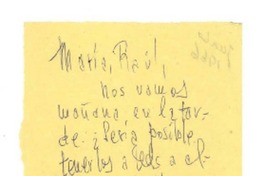 María, Raúl,
nos vamos
mañana, en la tar-
de. ¿Sería posible
tenerlos a Uds a al-